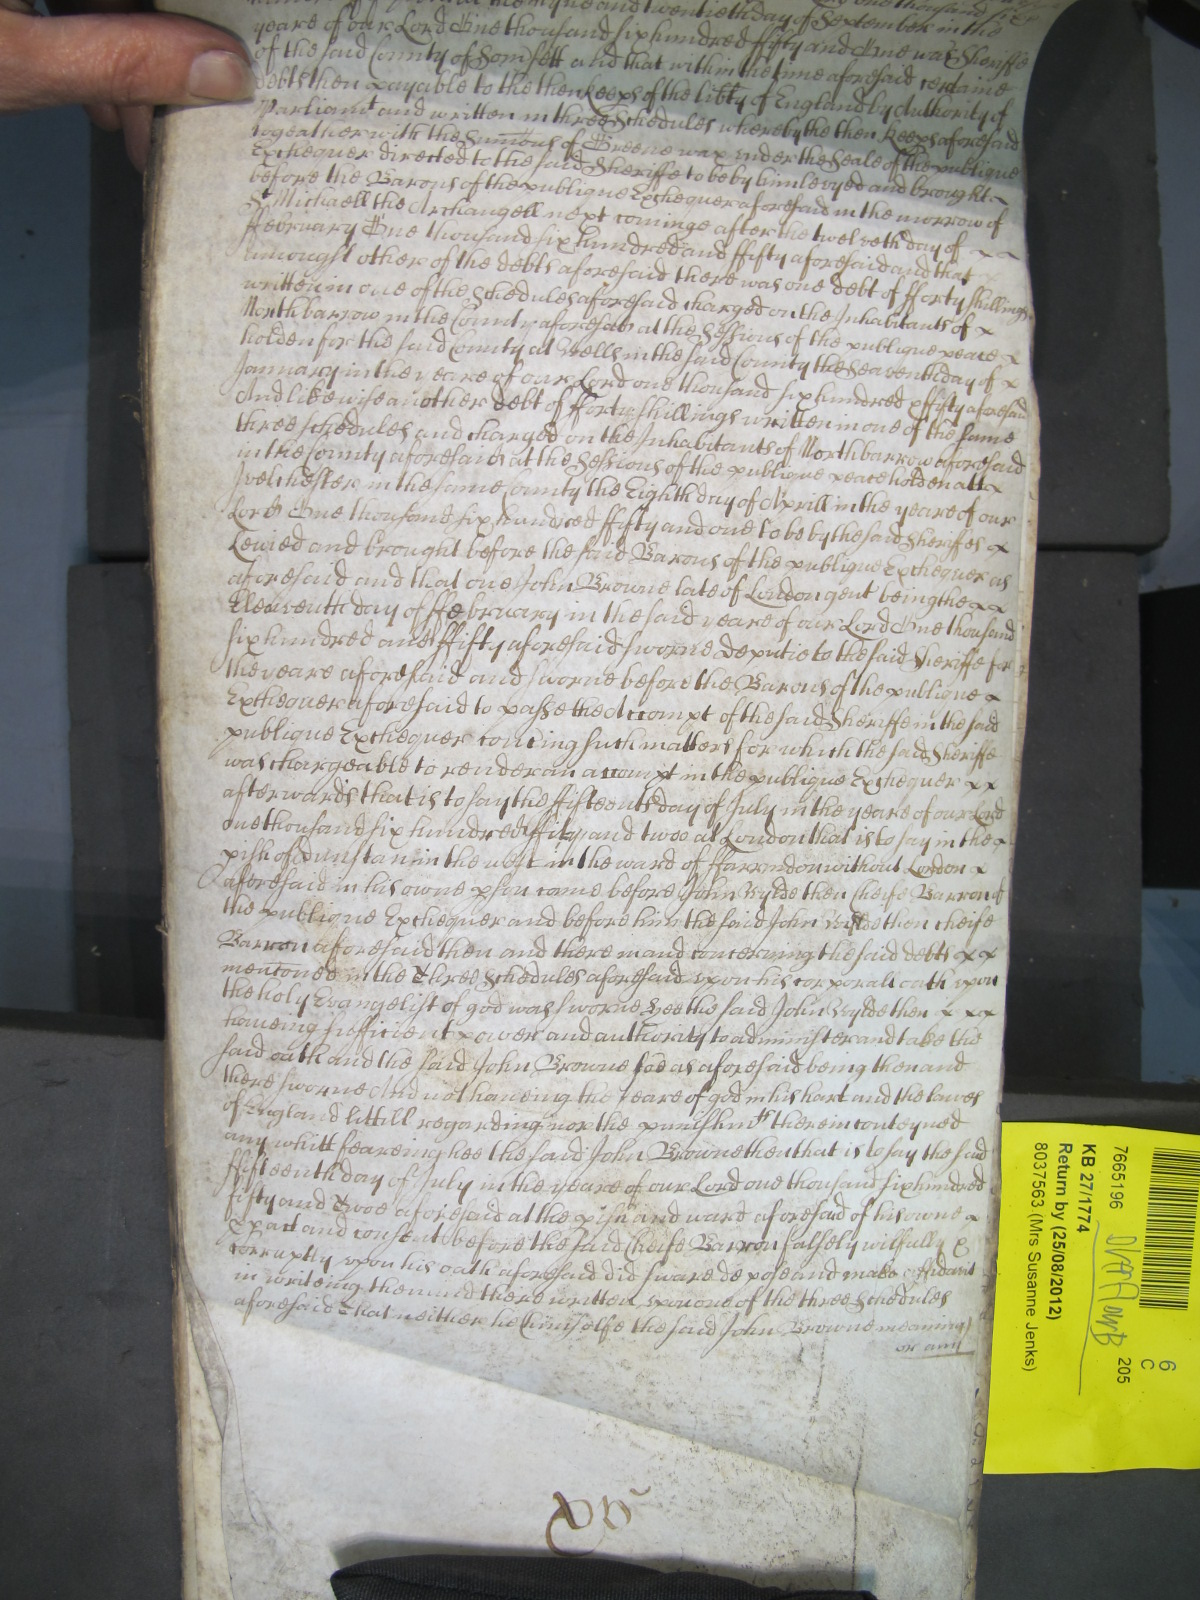 and twentieth day of September in the
yeare of our Lord One thousand six hundred fifty and One was Sheriffe
of the said County of Somsett and that within the time aforesaid certaine
debts then payable to the then keeps of the libty of England by Authority of
Parliamt and written in three Schedules whereby the then keeps aforesaid
togeather with the Sumons of Greene wax under the Seale of the publique
Exchequer directed to the said Sheriffe to be by him levyed and brought
before the Barons of the publique Exchequer aforesaid in the morrow of
St Michaell the Archangell next cominge after the twelveth day of x x
ffebruary One thousand six hundred and ffifty aforesaid and that
amongst other of the debts aforesaid there was one debt of fforty shillings
written in one of the Schedules aforesaid charged on the Inhabitants of x
Northbarrow in the County aforesaid at the Sessions of the publique peace x
holden for the said County at Wells in the said County the Seaventh day of x
January in the yeare of our Lord one thousand six hundred & ffifty aforesaid
And likewise another debt of fforty shillings written in one of the same
three schedules and charged on the Inhabitants of Northbarrow aforesaid
in the County aforesaid at the Sessions of the publique peace holden att x
Ivelchester in the same County the Eighth day of Aprill in the yeare of our
Lord One thousand six hundred ffifty and one to be by the said Sheriffe x
Levied and brought before the said Barons of the publique Exchequer as
aforesaid and that one John Browne late of London gent being the x x
Eleaventh day of ffebruary in the said yeare of our Lord One thousand
six hundred and ffifty aforesaid sworne Deputie to the said Sheriffe for
the yeare aforesaid and sworne before the Barons of the publique x
Exchequer aforesaid to passe the Accompt of the said Sheriffe in the said
publique Exchequer concing such matters for which the said Sheriffe
was chargeable to render an accompt in the publique Exchequer x x
afterwards that is to say the ffifteenth day of July in the yeare of our Lord
one thousand six hundred ffifty and twoe at London that is to say in the x
pish of dunstan in the west in the ward of ffarrindon without London x
aforesaid in his owne pson came before John Wylde then cheife Barron of
the publique Exchequer and before him the said John Wylde then cheife
Barron aforesaid then and there in and concerning the said debts x x
mentoned in the three Schedules aforesaid upon his corporall oath upon
the holy Evangelist of god was sworne hee the said John Wylde then x x x
haveing sufficient power and authority to administer and take the
said oath and the said John Browne soe as aforesaid being then and
there sworne And not haveing the feare of god in his hart and the lawes
of England littill regarding nor the punishmts therein conteyned
any whitt feareing hee the said John Browne then that is to say the said
ffifteenth day of July in the yeare of our Lord one thousand six hundred
fifty and twoe aforesaid at the pish and ward aforesaid of his owne x
pact and consent before the said Cheife Barron falsely wilfully &
corruptly upon his oath aforesaid did sweare depose and make Affidavit
in writeing then and there written upon one of the three Schedules
aforesaid that neither he himselfe the said John Browne meaning)
or any
6
C
7665196
205
KB 27/1774
Return by (25/08/2012)
8037563 (Mrs Susanne Jenks)